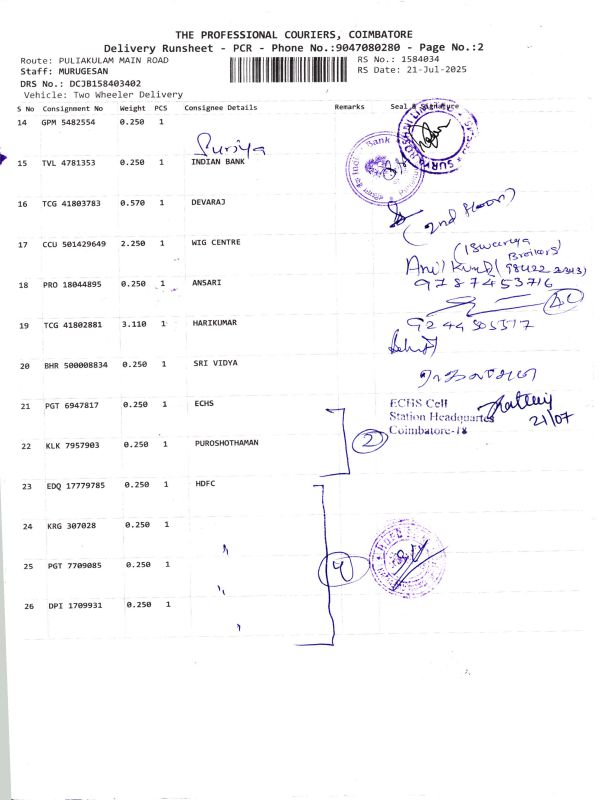 THE PROFESSIONAL COURIERS, COIMBATORE
Delivery Runsheet - PCR - Phone No.:9047080280 - Page No.:2
Route: PULIAKULAM MAIN ROAD
RS No.: 1584034
Staff: MURUGESAN
RS Date: 21-Jul-2025
DRS No.: DCJB158403402
Vehicle: Two Wheeler Delivery
S No Consignment No Weight PCS Consignee Details Remarks Seal & Signature
14 GPM 5482554 0.250 1
Suriya
15 TVL 4781353 0.250 1 INDIAN BANK
16 TCG 41803783 0.570 1 DEVARAJ
(2nd floor)
17 CCU 501429649 2.250 1 WIG CENTRE
(Iswarya
Brokers)
18 PRO 18044895 0.250 1 ANSARI
9787453716
19 TCG 41802881 3.110 1 HARIKUMAR
20 BHR 500008834 0.250 1 SRI VIDYA
21 PGT 6947817 0.250 1 ECHS
ECHS Cell
Station Headquarter
Coimbatore-18
21/07
22 KLK 7957903 0.250 1 PUROSHOTHAMAN
2
23 EDQ 17779785 0.250 1 HDFC
24 KRG 307028 0.250 1
25 PGT 7709085 0.250 1
4
26 DPI 1709931 0.250 1